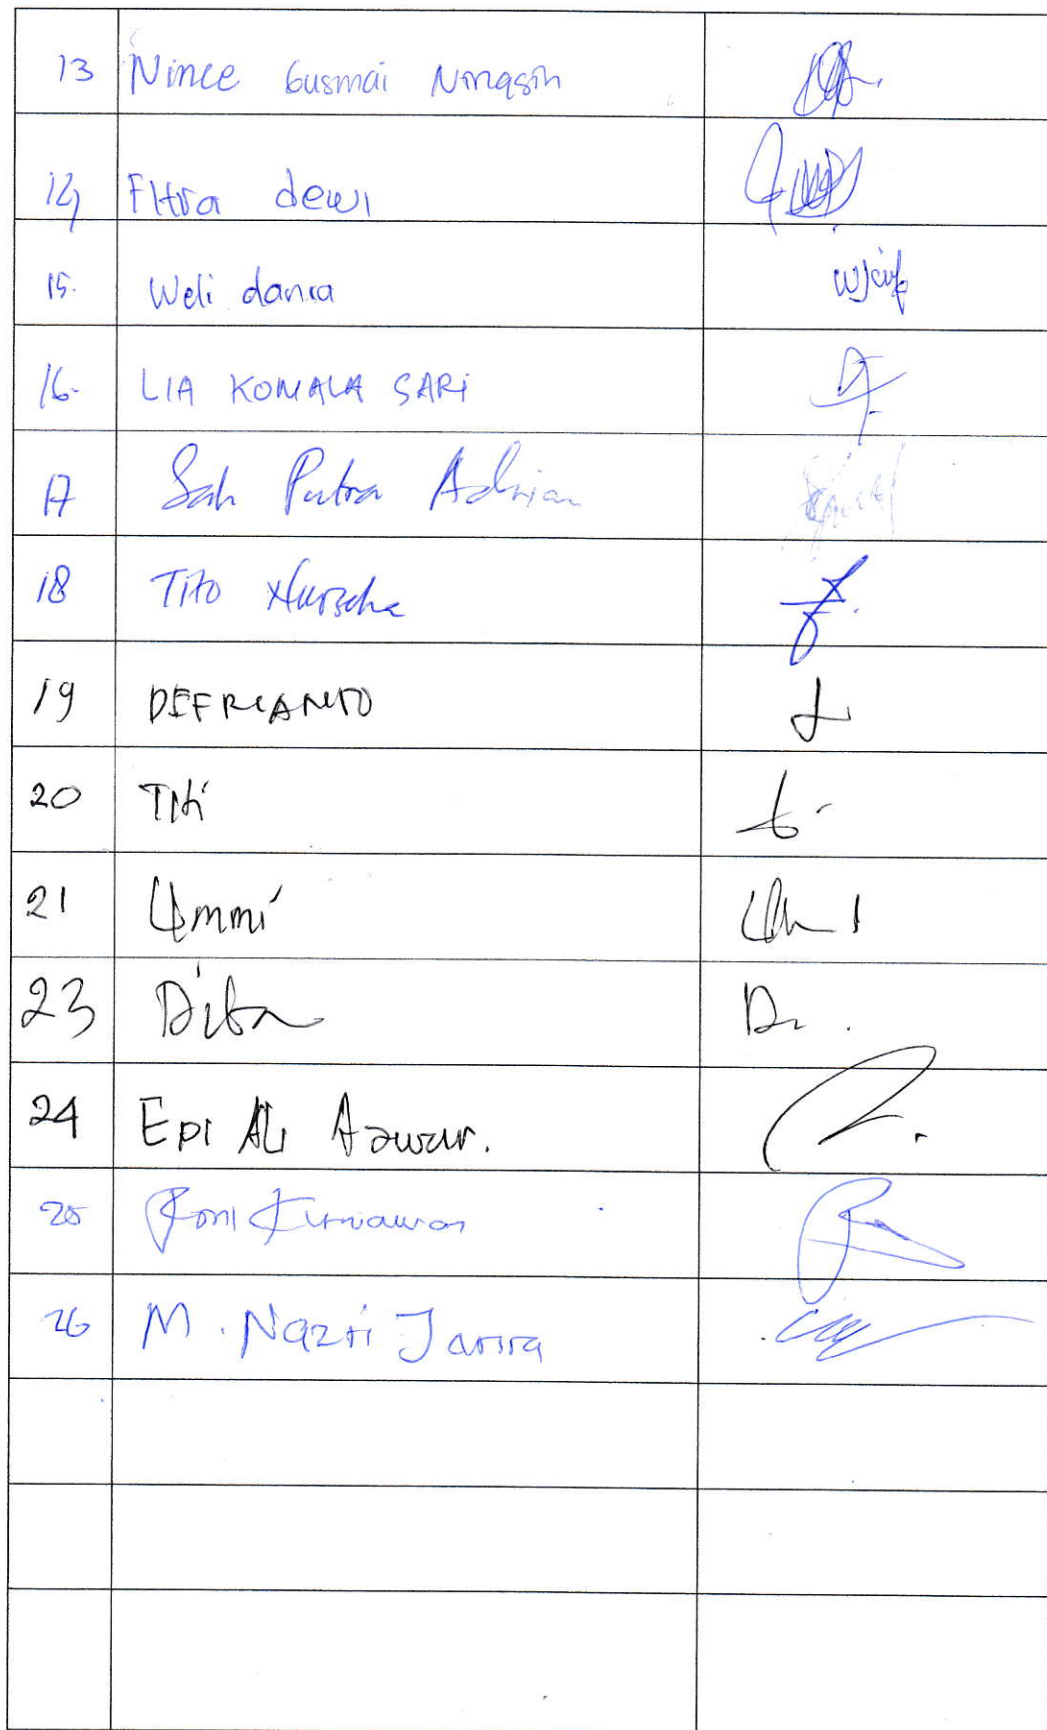 13 Nince Gusmai Ningsih
14 Fitra dewi
15. Weli dania
16. LIA KOMALA SARi
17 Sah Putra Adrian
18 Tito
19 DEFRIANTO
20 Titi
21 Ummi
23 Diba
24 Epi Ali Azwar.
25 Roni Kurniawan
26 M. Nazri Janira